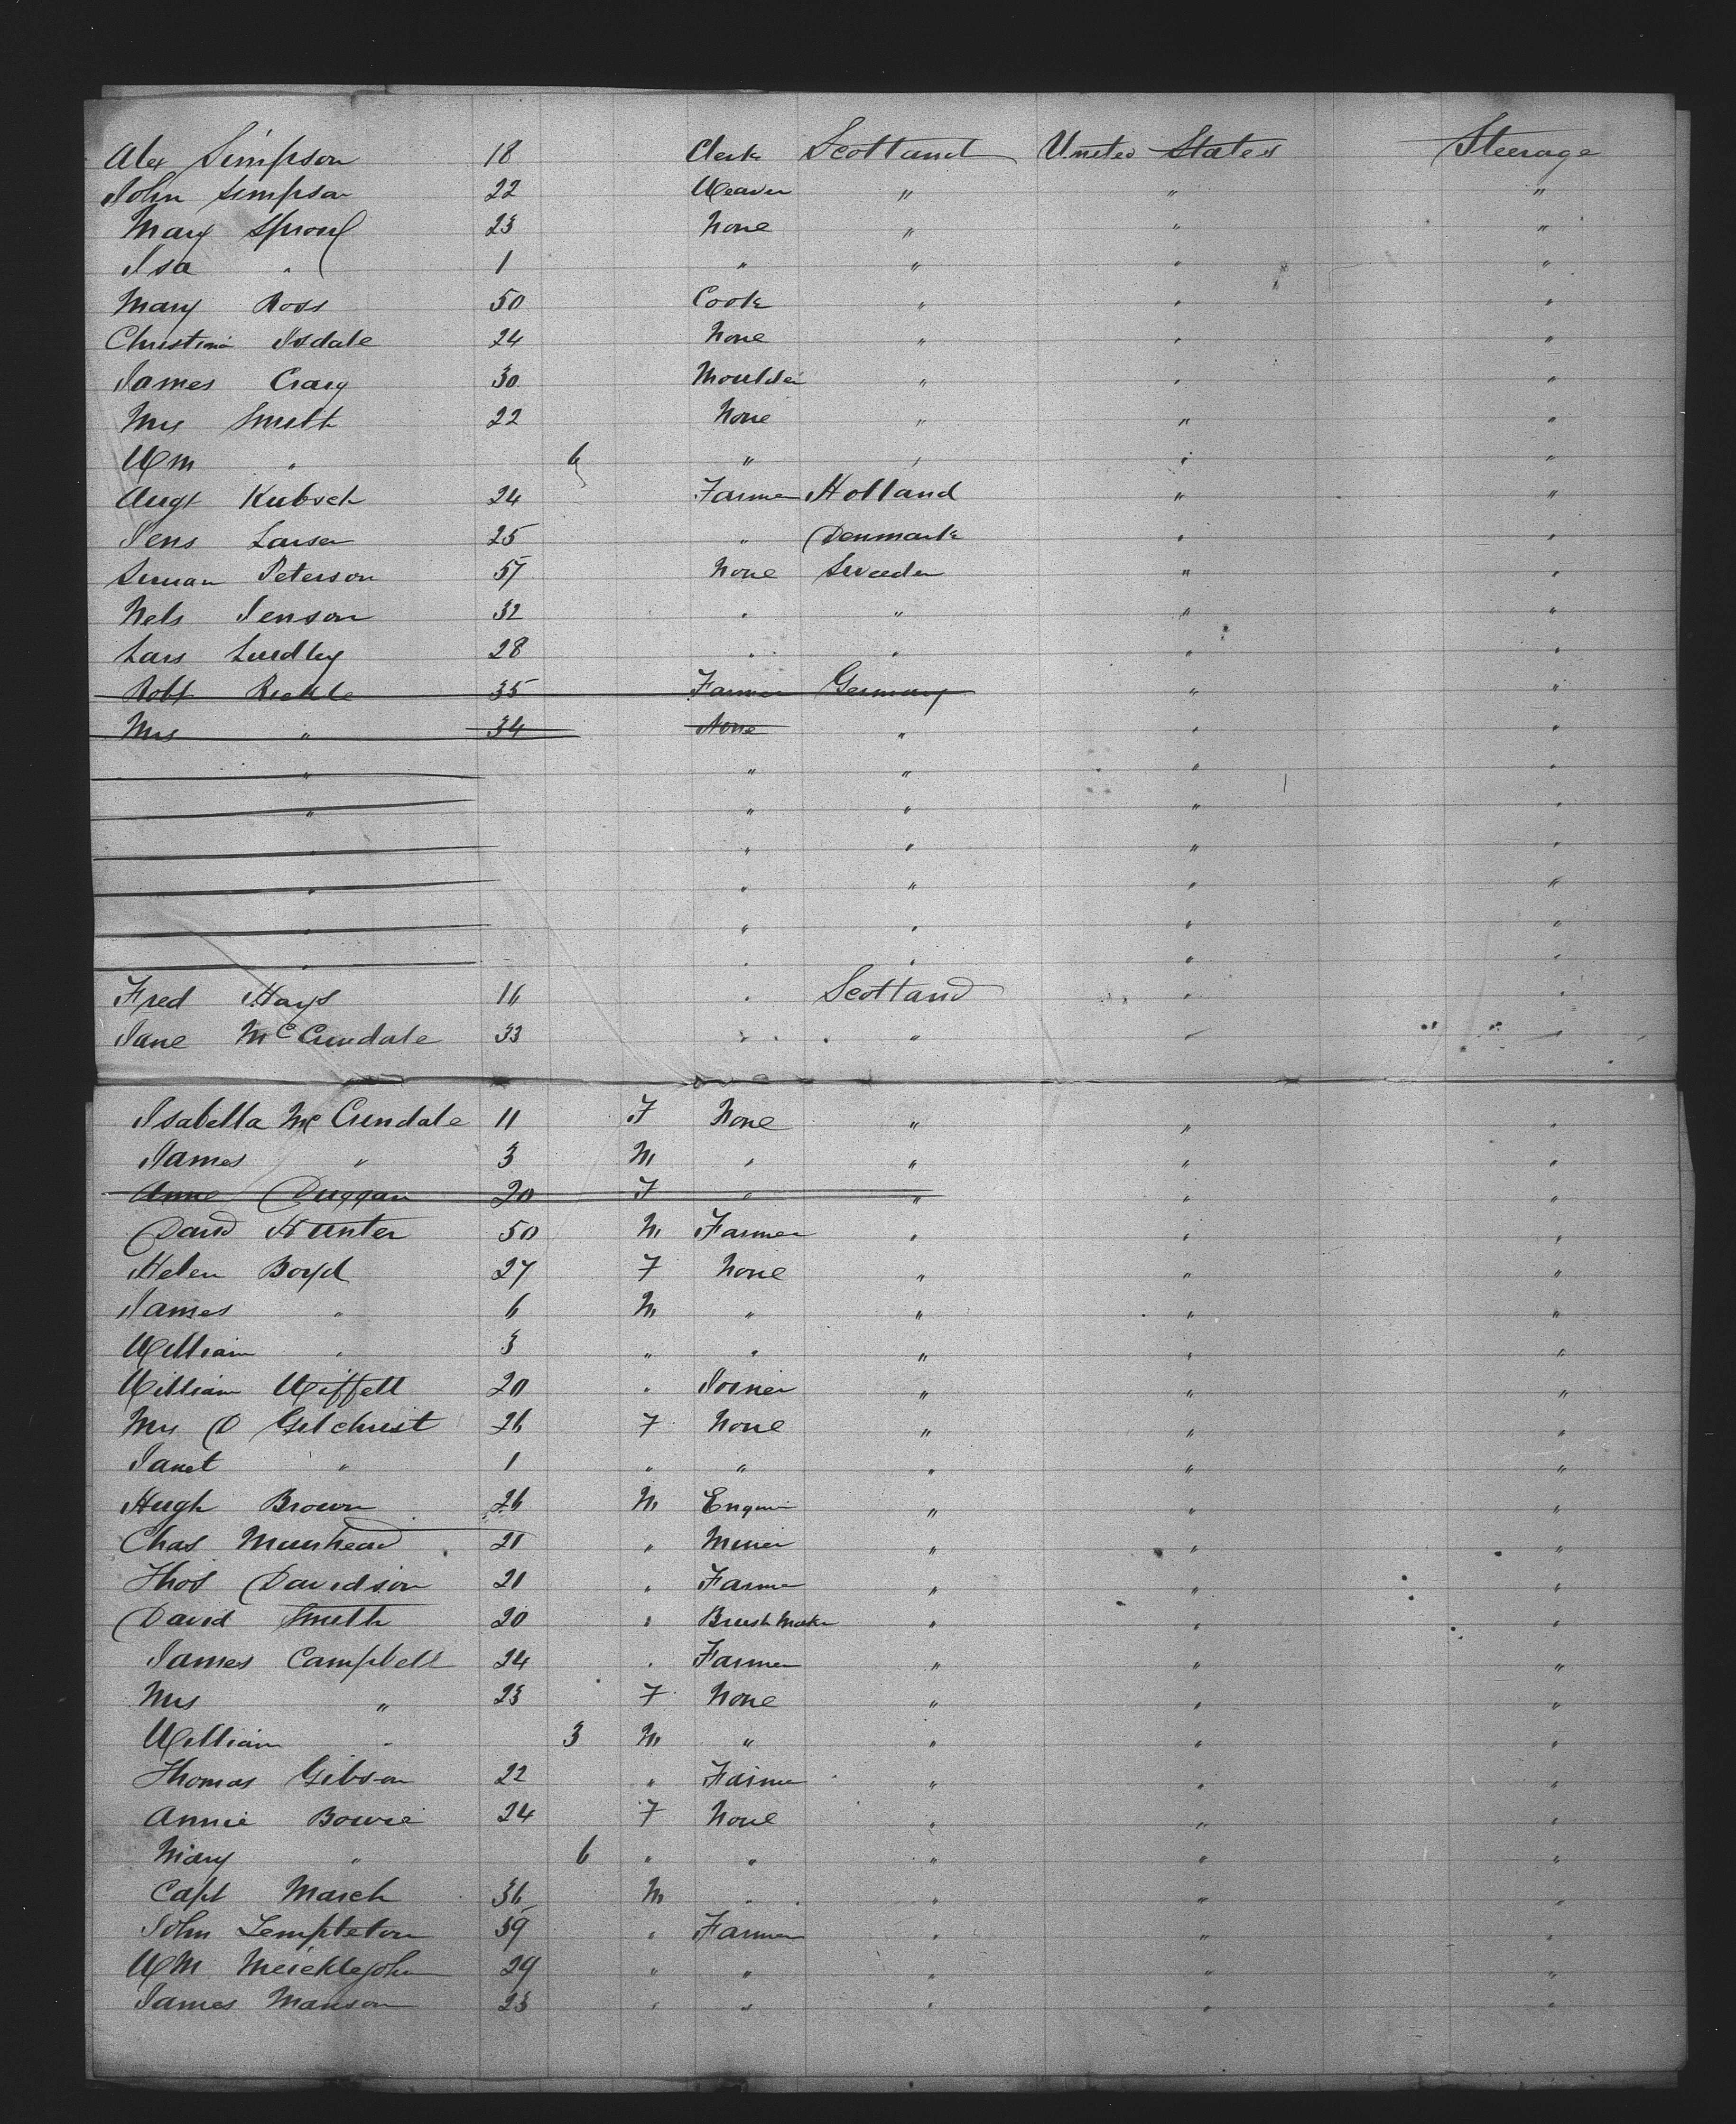 Alex Simpson 18 Clerk Scotland United States Steerage
John Simpson 22 Weaver " " "
Mary Sproul 23 None " " "
Isa " 1 " " " "
Mary Ross 50 Cook " " "
Christina Isdale 24 None " " "
James Craig 30 Moulder " " "
Mrs Smith 22 None " " "
Wm " 6 " " " "
Augt Kubsch 24 Farmer Holland " "
Jens Larsen 25 " Denmark " "
Peterson 57 None Sweden " "
Nels Jenson 32 " " " "
Lars Lindley 28 " " " "
Robt 35 Farmer Germany " "
Mrs " 34 None " " "
" " " " "
" " " " "
" " " " "
" " " " "
" " " " "
" " " " "
Fred Hays 16 " Scotland " "
Jane McCundale 33 " " " "
Isabella McCundale 11 F None " " "
James " 3 M " " " "
Anne Duggan 20 F " " " "
David Hunter 50 M Farmer " " "
Helen Boyd 27 F None " " "
James " 6 M " " " "
William " 3 " " " " "
William Wiffell 20 " Joiner " " "
Mrs D Gilchrist 26 F None " " "
Janet " 1 " " " " "
Hugh Brown 26 M Engineer " " "
Chas Muirhead 21 " Miner " " "
Thos Davidson 21 " Farmer " " "
David Smith 20 " Brush Maker " " "
James Campbell 24 " Farmer " " "
Mrs " 23 F None " " "
William " 3 M " " " "
Thomas Gibson 22 " Farmer " " "
Annie Bowie 24 F None " " "
Mary " 6 " " " " "
Capt March 36 M " " " "
John Templeton 59 " Farmer " " "
Wm Meicklejohn 29 " " " " "
James Manson 23 " " " " "